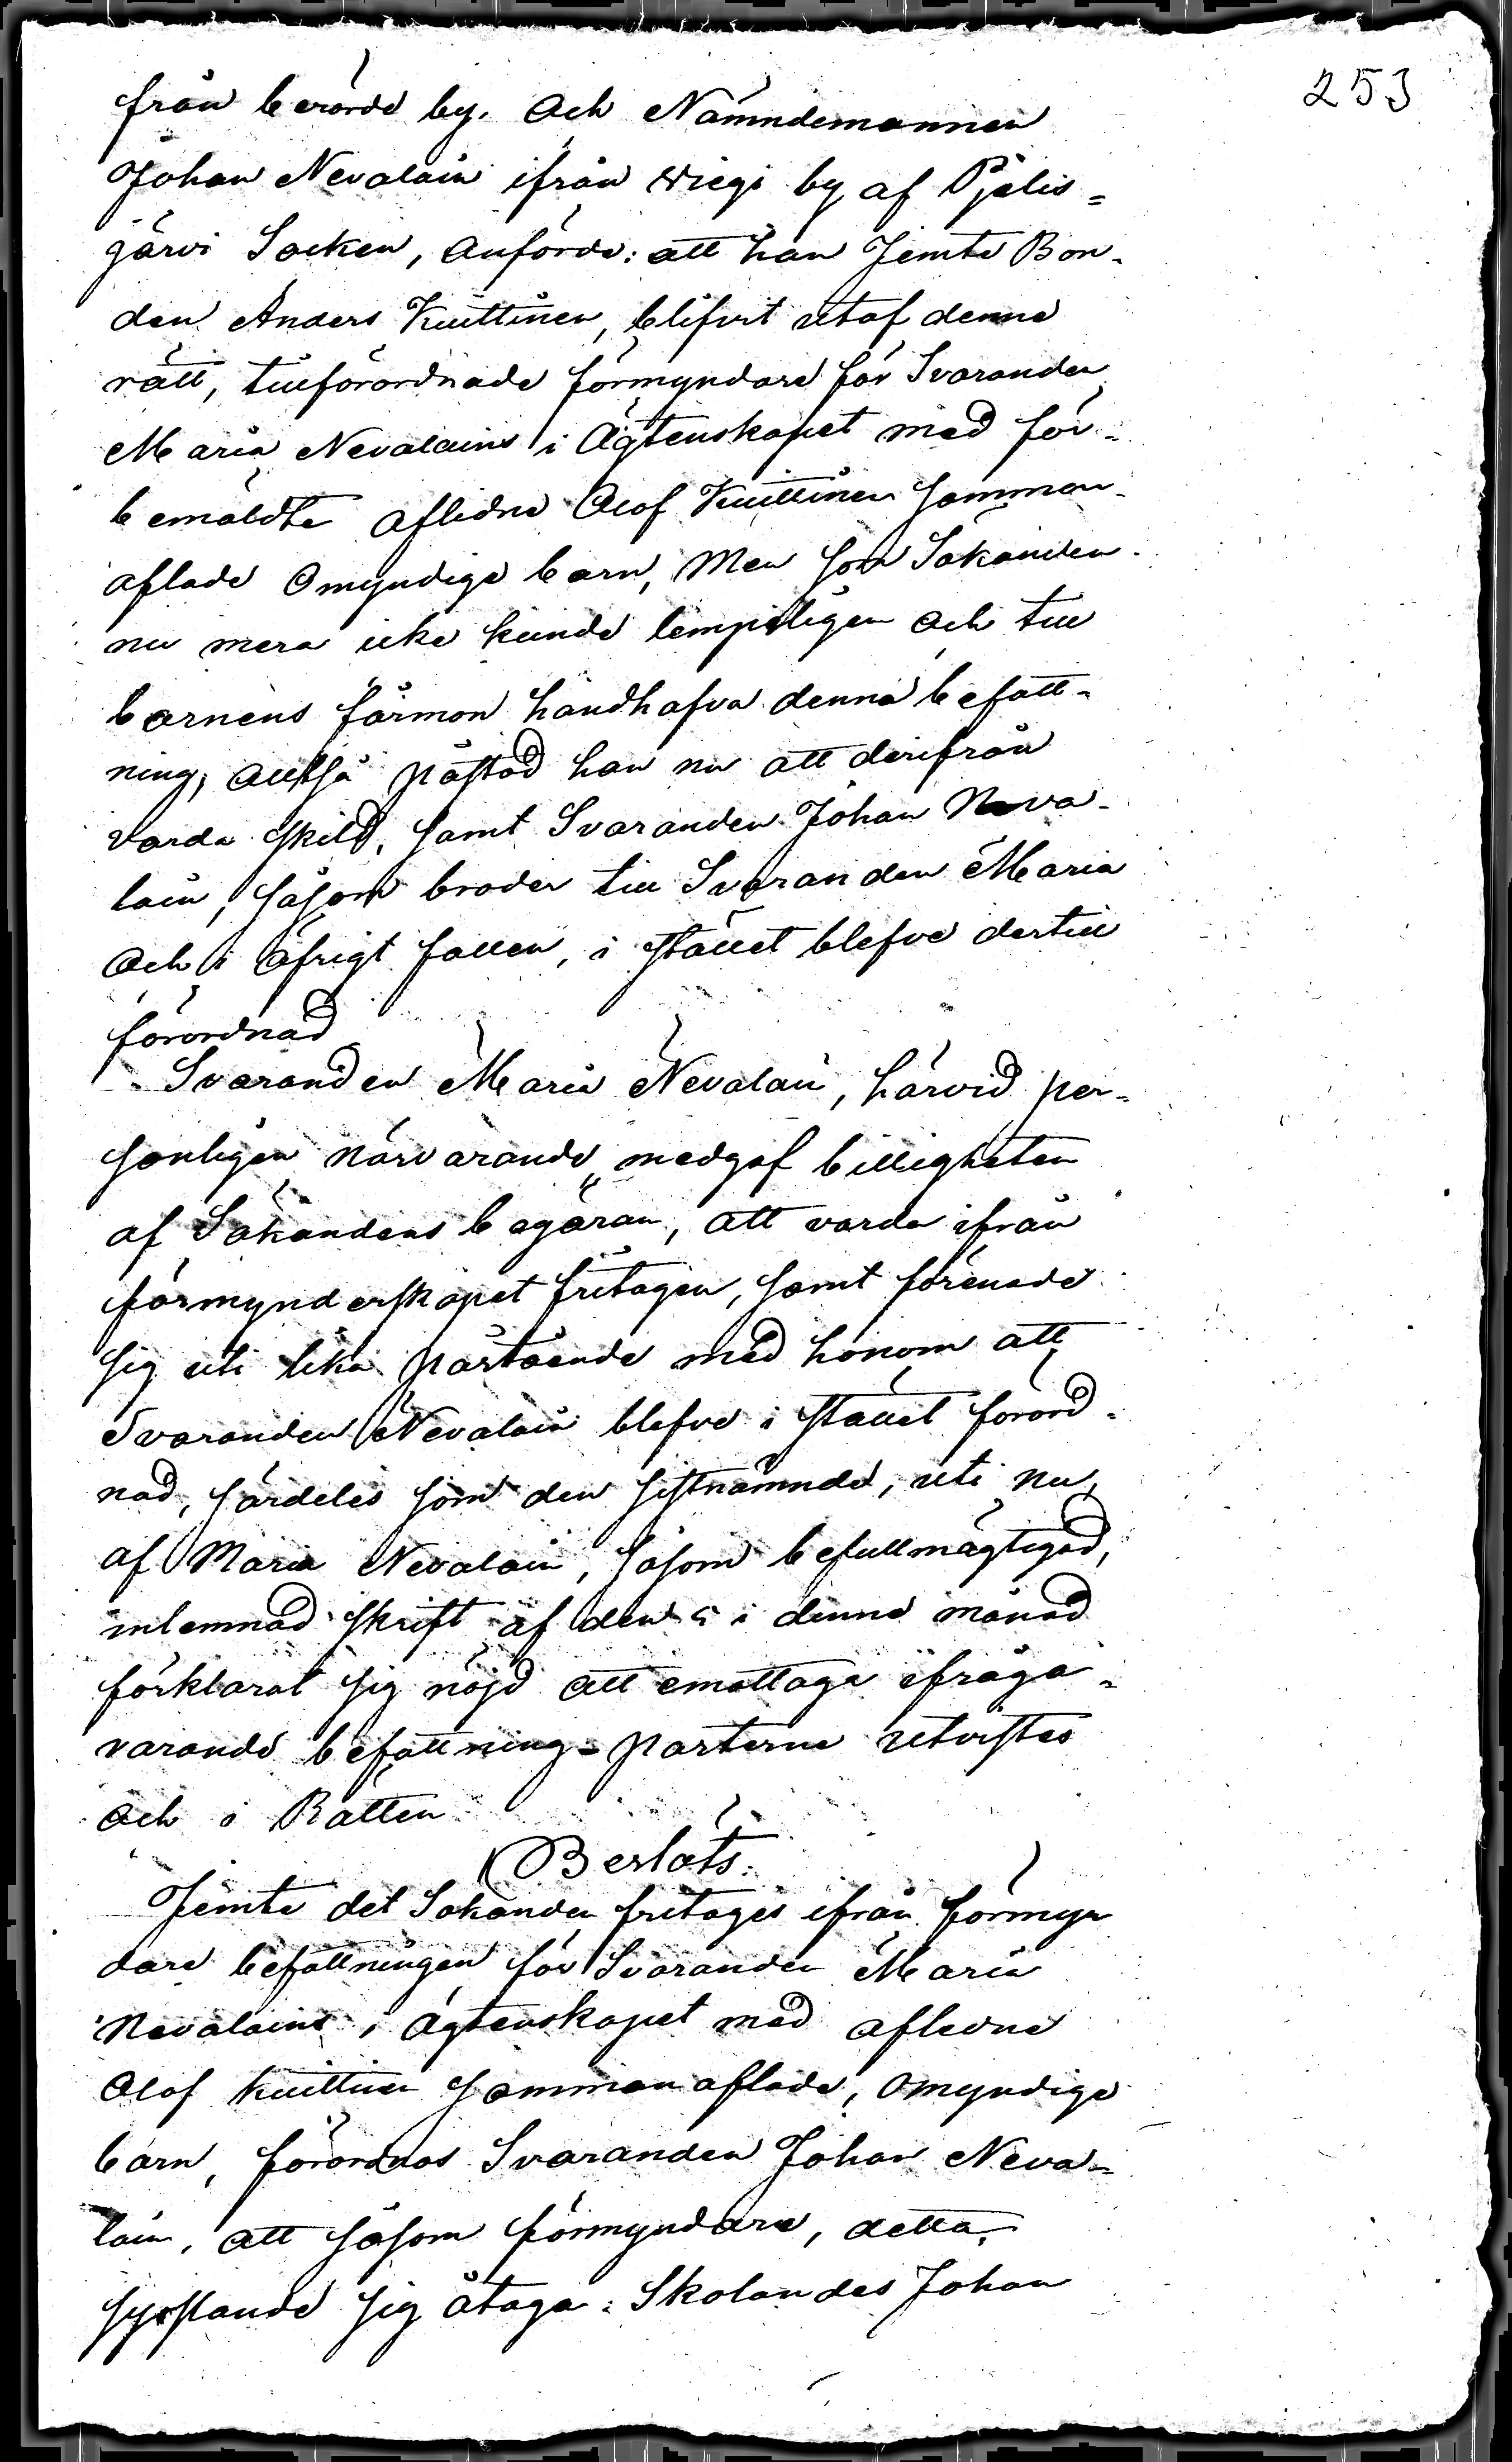 253
från berörde by. Och Nämndemannen
Johan Nevalain ifrån Wiegi by af Pjelis=
järvi Socken, Anförde: att han Jemte Bon-
den Anders Kuittinen, blifvit utaf denne
rätt, tillförordnade förmyndare för Svaranden
Maria Nevalains i Ägtenskapet med för=
bemäldte aflidne Olof Kuittinen samman-
aflade Omyndige barn, Men som Sökanden
nu mera icke kunde lempeligen och till
barnens förmon handhafva denna befatt-
ning, alltså påstod han nu att derifrån
varda skild, samt Svaranden Johan Neva-
lain, såsom broder till Svaranden Maria
och i öfrigt fallen, i stället blefve dertill
förordnad
Svaranden Maria Nevalain, härvid per-
sonligen närvarande, medgaf billigheten
af Sökandens begäran, att varda ifrån
förmynderskapet fritagen, samt förenade
sig uti lika påstående med honom att
Svaranden Nevalain blefve i stället förord-
nad, särdeles som den sistnämnde, uti nu,
af Maria Nevalain, såsom befullmägtigad,
inlemnad skrift af den 5 i denne månad
förklarat sig nöjd att emottaga ifråga=
varande befattning - Parterne utvistes
och i Rätten
Beslöts:
Jemte det Sökanden fritages ifrån förmyn
dare befattningen för Svaranden Maria
Nevalains i ägtenskapet med aflidne
Olof Kuittinen sammanaflade, omyndige
barn, förordnas Svaranden Johan Neva=
lain, att såsom förmyndare, detta
sysslande sig åtaga: Skolandes Johan